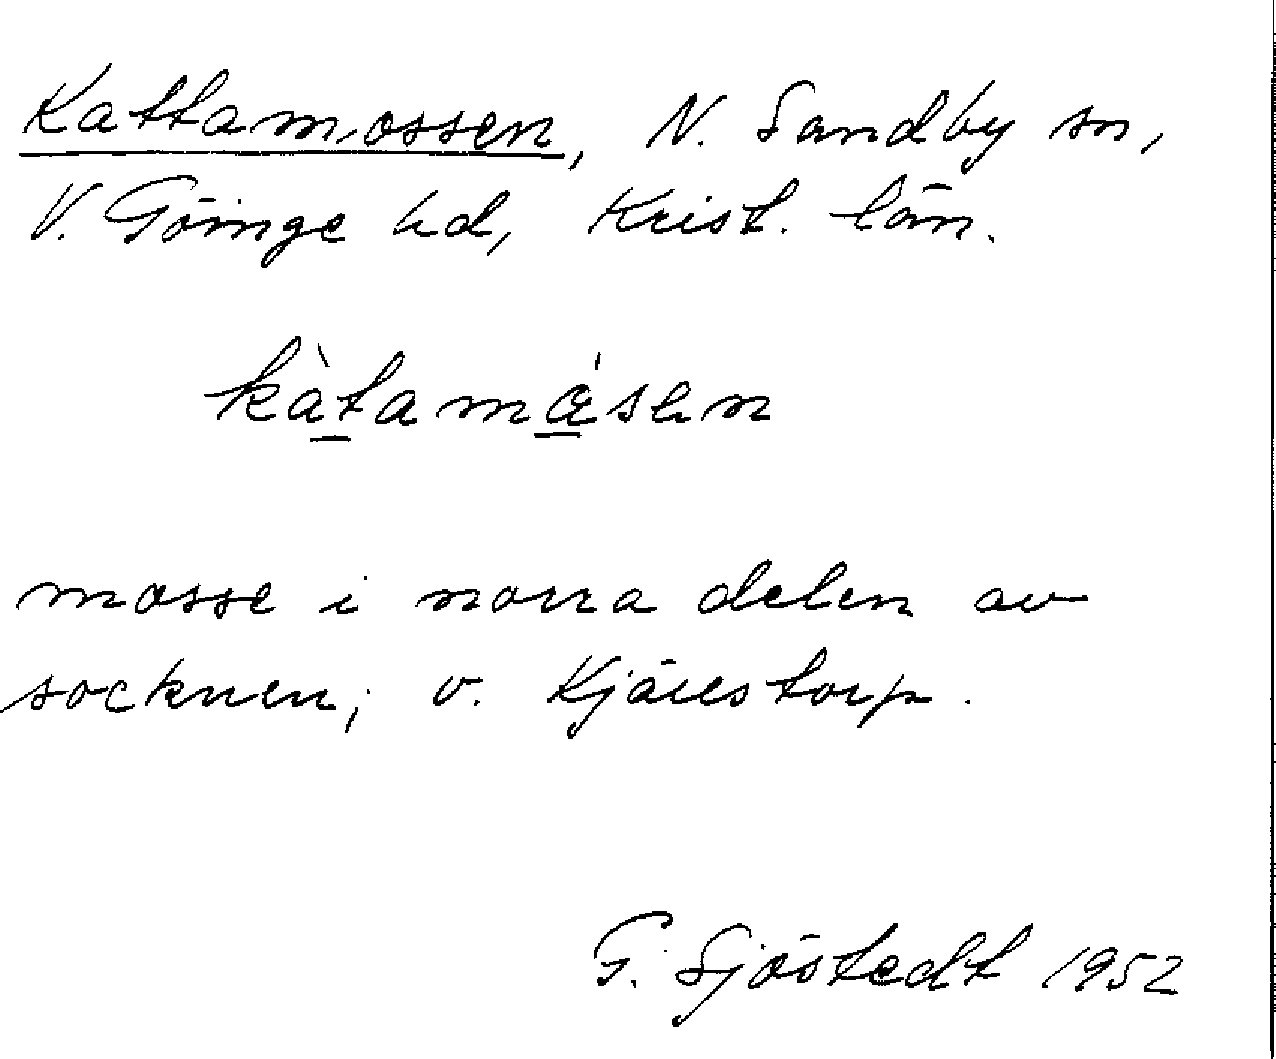 Kattamossen, N. Sandby sn,
V. Göinge hd, Krist. län.
kàtamǽsen
mosse i norra delen av
socknen; v. Kjärrstorp.
G. Sjöstedt 1952